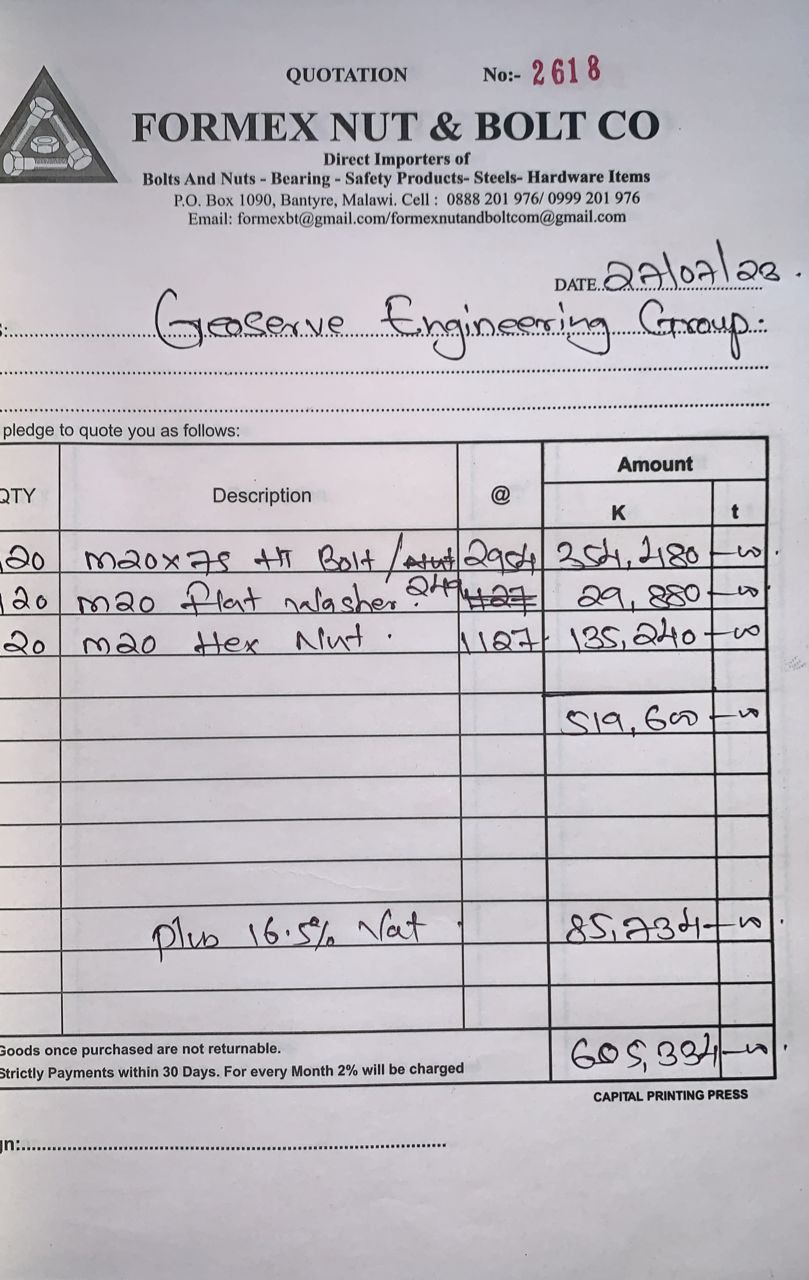 QUOTATION No:- 2618
FORMEX NUT & BOLT CO
Direct Importers of
Bolts And Nuts - Bearing - Safety Products- Steels- Hardware Items
P.O. Box 1090, Bantyre, Malawi. Cell : 0888 201 976/ 0999 201 976
Email: formexbt@gmail.com/formexnutandboltcom@gmail.com
DATE 27/07/23.
s: Geoserve Engineering Group.
pledge to quote you as follows:
Amount
QTY Description @ K t
20 M20x75 HT Bolt / 2954 354,480 - 00
120 M20 Flat Washer. 249 29,880 - 00
20 M20 Hex Nut. 1127 135,240 - 00
519,600 - 00
plus 16.5% Vat 85,734 - 00
Goods once purchased are not returnable.
Strictly Payments within 30 Days. For every Month 2% will be charged
605,334 - 00
CAPITAL PRINTING PRESS
gn: